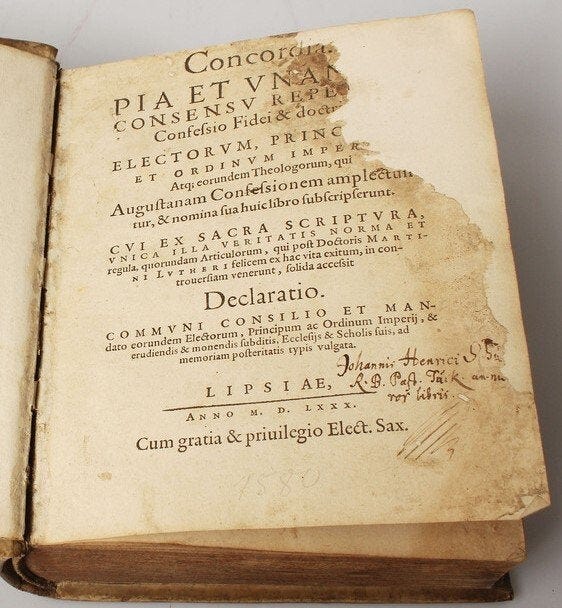 Concordia.
PIA ET VNAN
CONSENSV REPE
Confessio Fidei & doctr
ELECTORVM, PRINC
ET ORDINVM IMPER
Atq; eorundem Theologorum, qui
Augustanam Confessionem amplectun
tur, & nomina sua huic libro subscripserunt.
CVI EX SACRA SCRIPTVRA,
VNICA ILLA VERITATIS NORMA ET
regula, quorundam Articulorum, qui post Doctoris MARTI-
NI LVTHERI felicem ex hac vita exitum, in con-
trouersiam venerunt, solida accessit
Declaratio.
COMMVNI CONSILIO ET MAN-
dato eorundem Electorum, Principum ac Ordinum Imperij, &
erudiendis & monendis subditis, Ecclesijs & Scholis suis, ad
memoriam posteritatis typis vulgata.
Johannis Henrici
R. D. Past.
libris.
LIPSIAE,
ANNO M. D. LXXX.
Cum gratia & priuilegio Elect. Sax.
1580